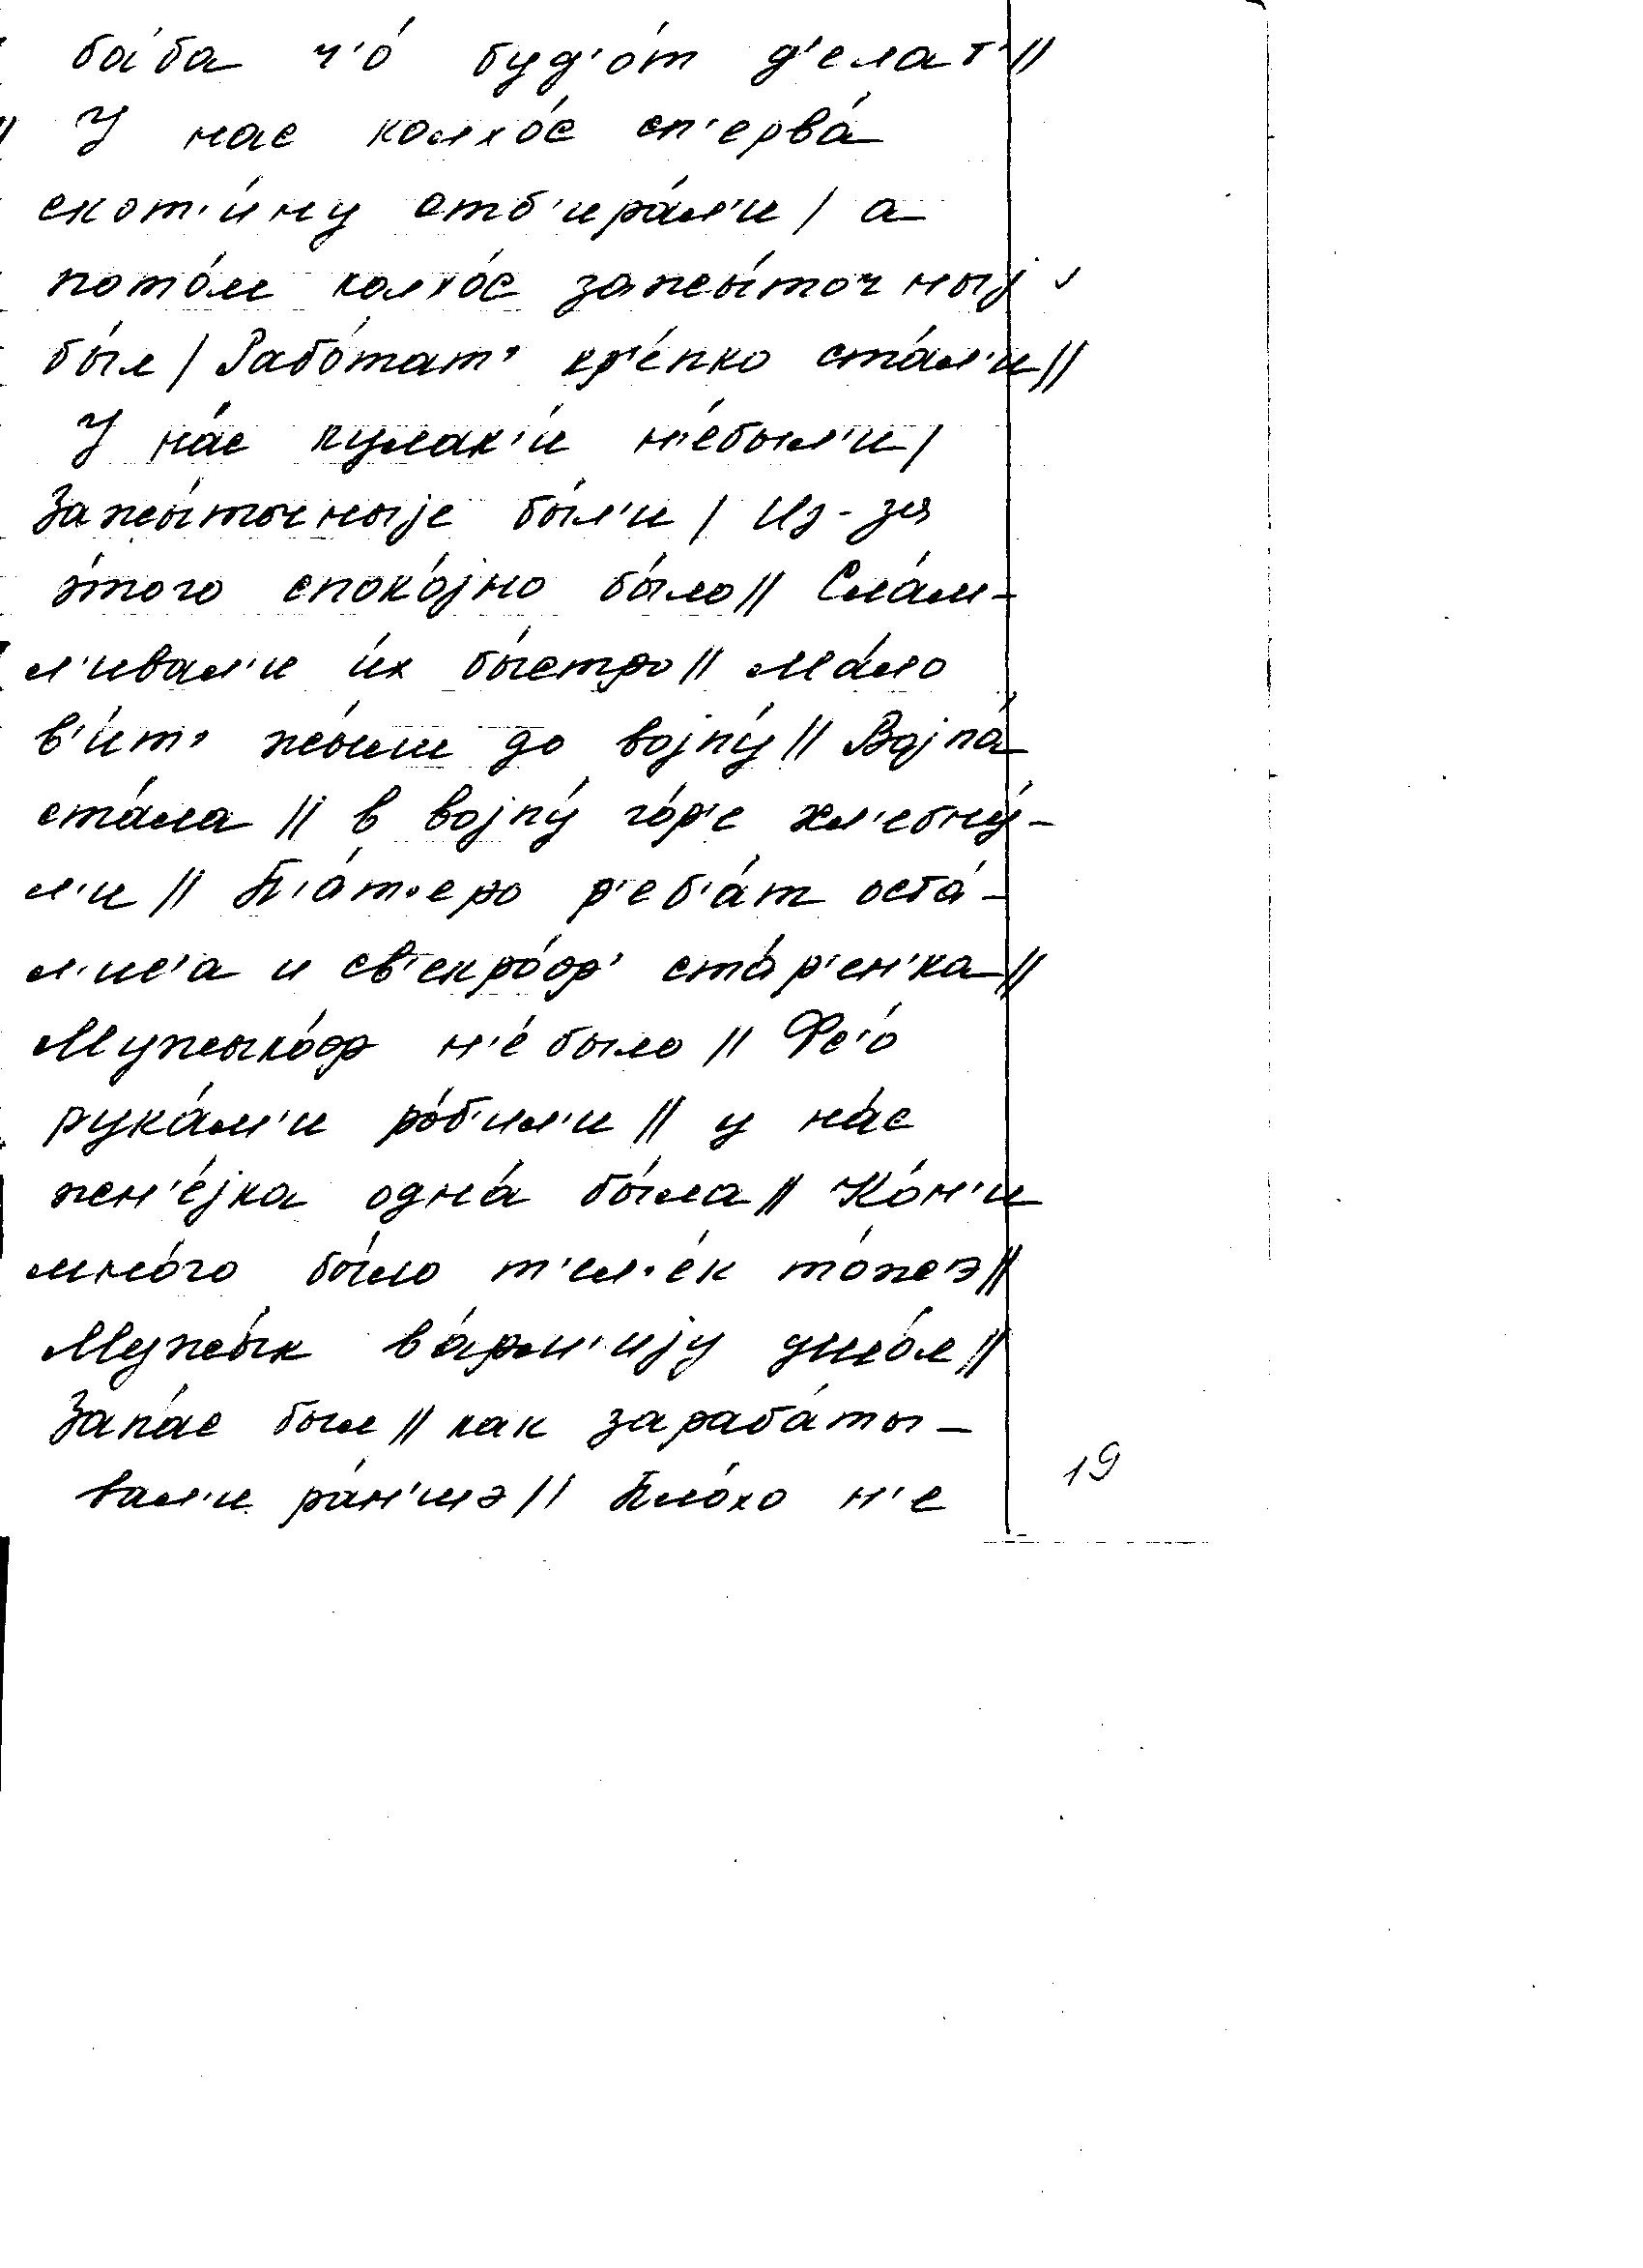 ба́ба ч'о́ буд'о́т д'елат'//
У нас колхо́с сп'ерва́
скот'и́ну отб'ира́л'и / а
пото́м колхо́с зажы́точныj
бы́л / Рабо́тат' кр'е́пко ста́л'и //
У на́с кулак'и́ н'е́был'и /
Зажы́точныjе бы́л'и / Из-за
э́того споко́jно бы́ло // Сла́м-
л'ивал'и и́х бы́стро // ма́ло
в'и́т' жы́ли до воjну́ // Воjна́
ста́ла // в воjну́ го́р'е хл'ебну́-
л'и // П'а́т'еро р'еб'а́т оста́-
л'ис'а и св'екро́ф' ста́р'ен'ка //
Мужыко́ф н'е́ было // Фс'о́
рука́м'и ро́б'ил'и // у на́с
жн'е́jка одна́ была // Ко́н'и
мно́го бы́ло т'ел'е́к то́жэ //
Мужы́к в а́рм'иjу ушо́л //
Запа́с был // как зараба́ты-
вал'и ра́н'шэ // Пло́хо н'е
19